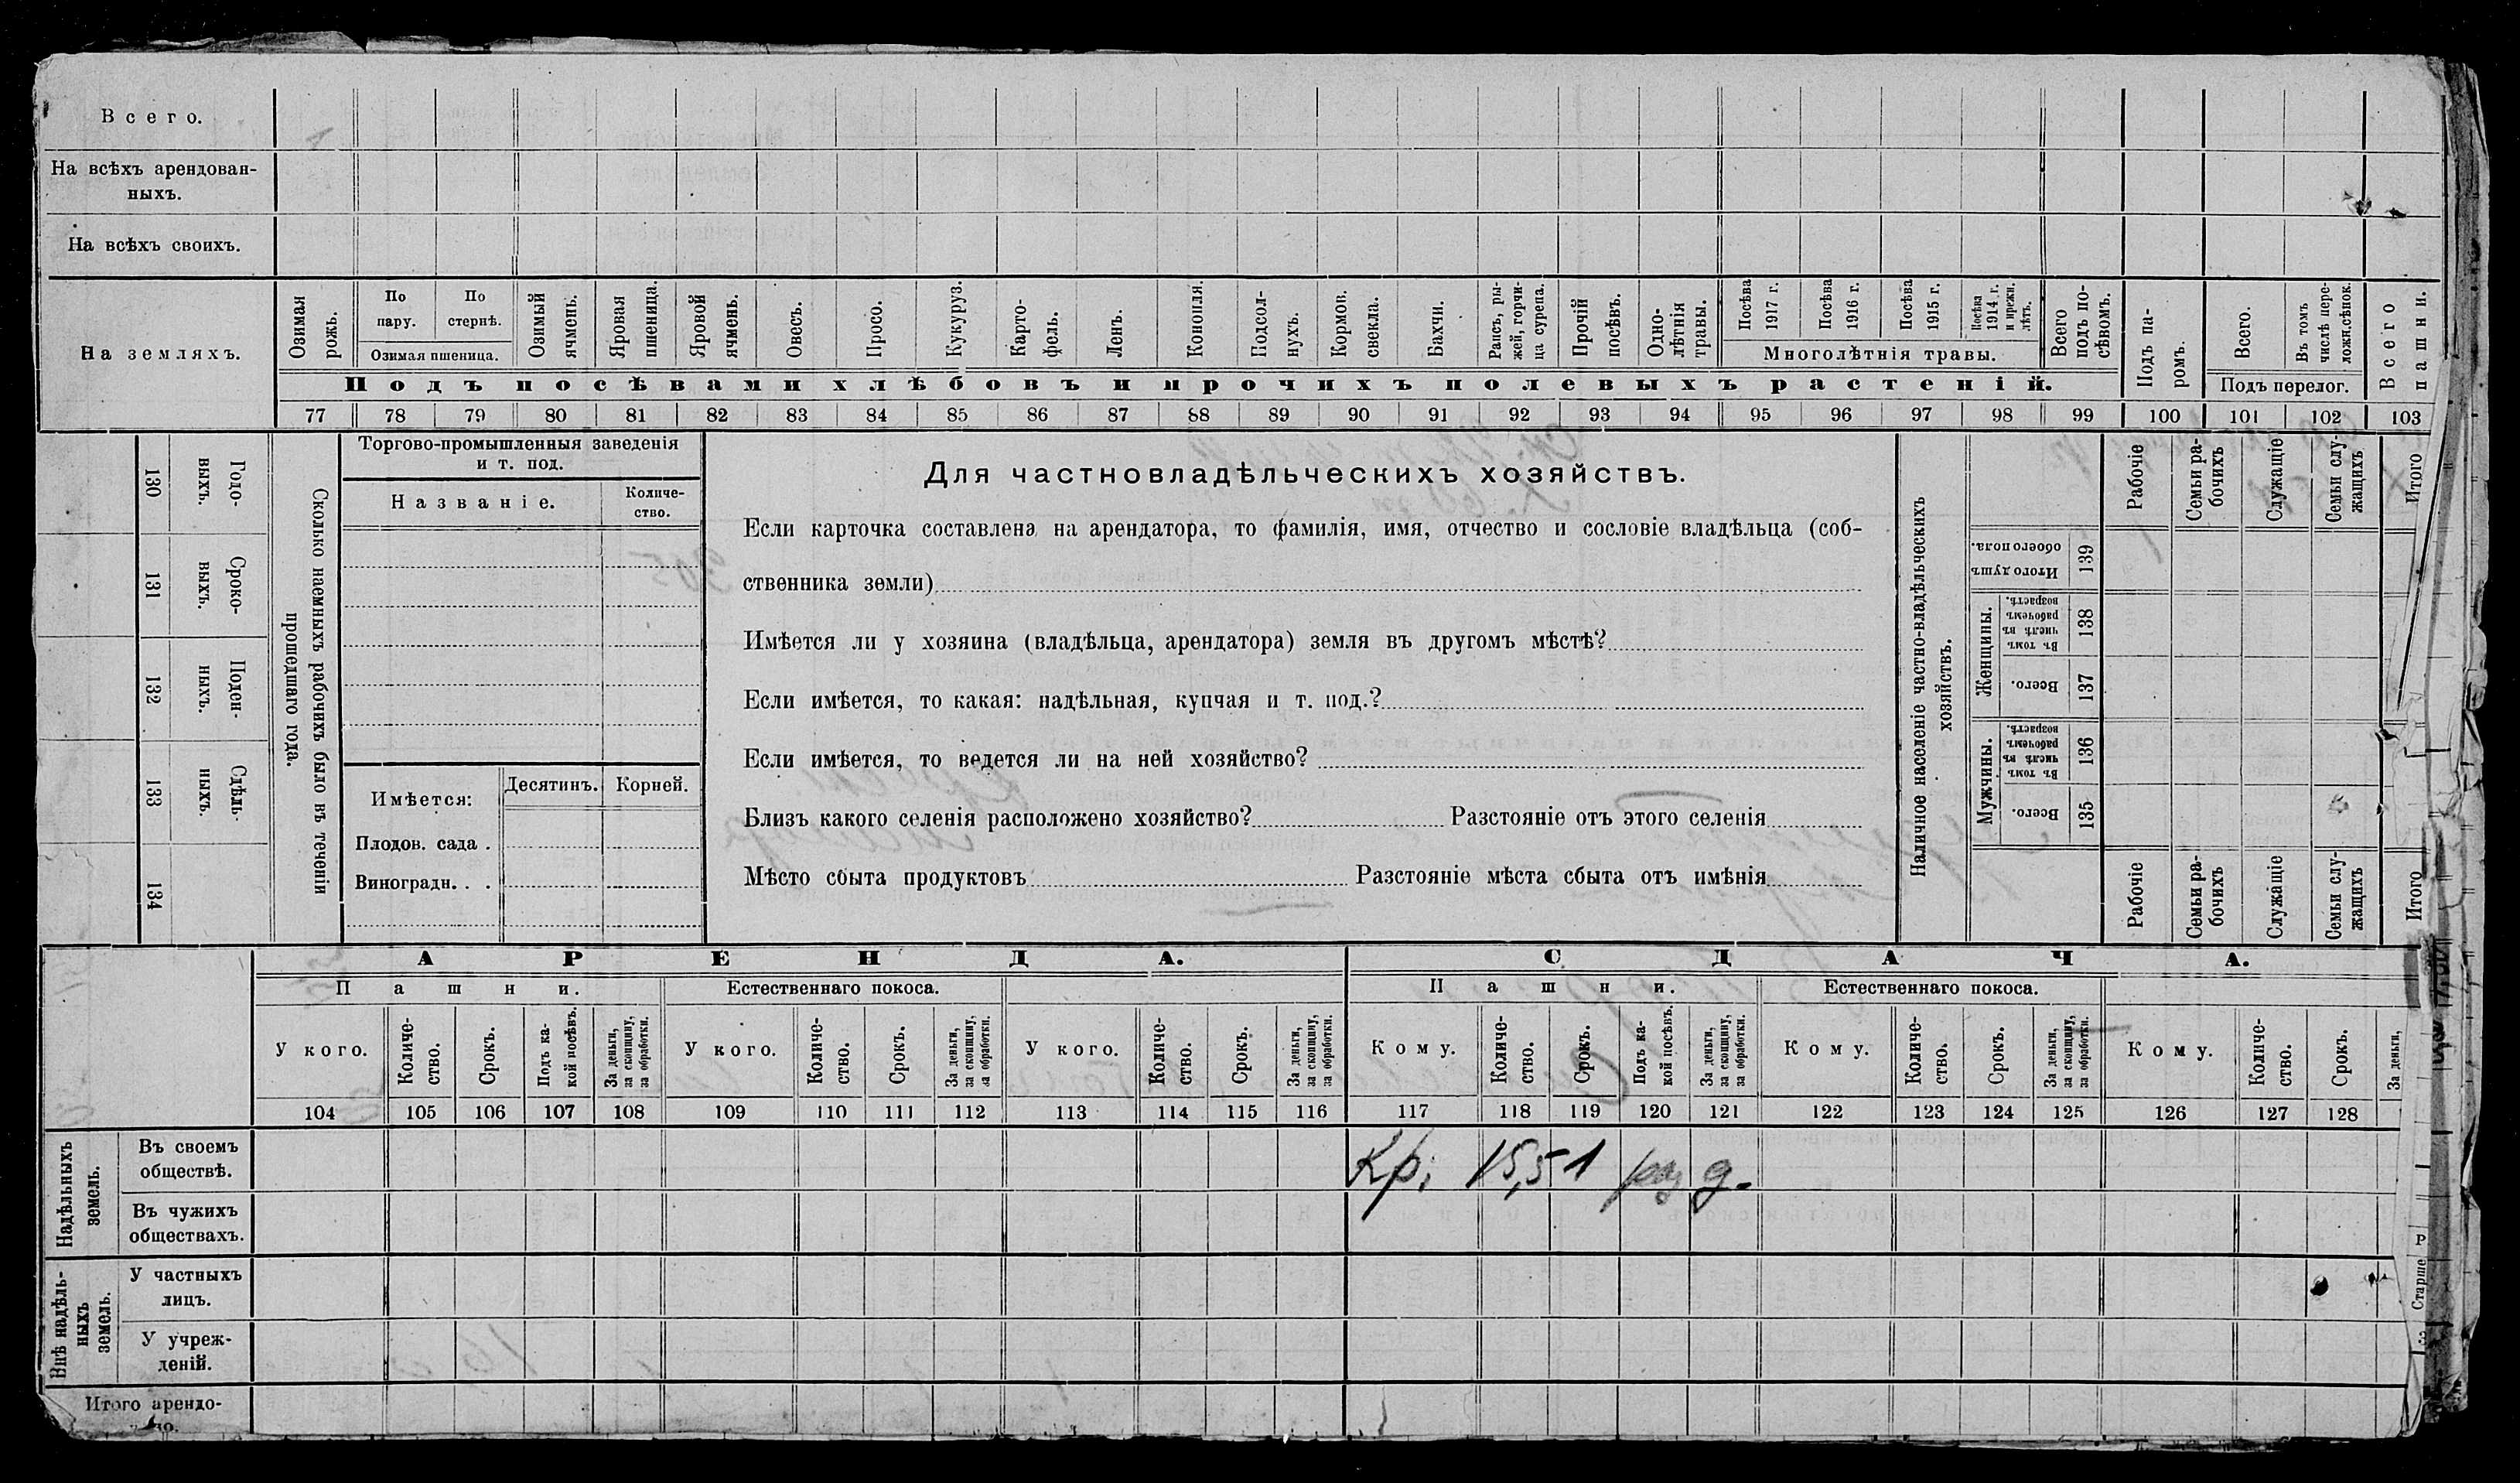 Всего.
На всѣхъ арендован-
ныхъ.
На всѣхъ своихъ.
На земляхъ.
Озимая рожь.
По пару.
По стернѣ.
Озимая пшеница.
Озимый ячмень.
Яровая пшеница.
Яровой ячмень.
Овесъ.
Просо.
Кукуруз.
Карто-
фель.
Ленъ.
Конопля.
Подсол-
нухъ.
Кормов. свекла.
Бахчи.
Рапсъ, ры-
жей, горчи-
ца сурепа.
Прочій посѣвъ.
Одно-
лѣтнія травы.
Посѣва 1917 г.
Посѣва 1916 г.
Посѣва 1915 г.
Посѣва 1914 г. и прежн. лѣтъ.
Многолѣтнія травы.
Всего подъ по-
сѣвомъ.
Подъ па-
ромъ.
Всего.
Въ томъ числѣ пере-
лож.сѣнок.
Подъ перелог.
Всего пашни.
Подъ посѣвами хлѣбовъ и прочихъ полевыхъ растеній.
77 78 79 80 81 82 83 84 85 86 87 88 89 90 91 92 93 94 95 96 97 98 99 100 101 102 103
130 Годо-
выхъ.
131 Сроко-
выхъ.
132 Поден-
ныхъ.
133 Сдѣль-
ныхъ.
134
Сколько наемныхъ рабочихъ было въ теченіи
прошедшаго года.
Торгово-промышленныя заведенія
и т. под.
Названіе.
Количе-
ство.
Имѣется:
Десятинъ.
Корней.
Плодов. сада .
Виноградн. . .
Для частновладѣльческихъ хозяйствъ.
Если карточка составлена на арендатора, то фамилія, имя, отчество и сословіе владѣльца (соб-
ственника земли)
Имѣется ли у хозяина (владѣльца, арендатора) земля въ другомъ мѣстѣ?
Если имѣется, то какая: надѣльная, купчая и т. под.?
Если имѣется, то ведется ли на ней хозяйство?
Близъ какого селенія расположено хозяйство? Разстояніе отъ этого селенія
Мѣсто сбыта продуктовъ Разстояніе мѣста сбыта отъ имѣнія
Наличное населеніе частно-владѣльческихъ
хозяйствъ.
Рабочіе
Семьи ра-
бочихъ
Служащіе
Семьи слу-
жащихъ
Итого
Итого душъ обоего пола. 139
Женщины.
Въ томъ числѣ въ рабочемъ возрастѣ. 138
Всего. 137
Мужчины.
Въ томъ числѣ въ рабочемъ возрастѣ. 136
Всего. 135
Рабочіе
Семьи ра-
бочихъ
Служащіе
Семьи слу-
жащихъ
Итого
АРЕНДА.
СДАЧА.
Пашни.
Естественнаго покоса.
Пашни.
Естественнаго покоса.
У кого.
Количе-
ство.
Срокъ.
Подъ ка-
кой посѣвъ.
За деньги, за скопщину, за обработки.
У кого.
Количе-
ство.
Срокъ.
За деньги, за скопщину, за обработки.
У кого.
Количе-
ство.
Срокъ.
За деньги, за скопщину, за обработки.
Кому.
Количе-
ство.
Срокъ.
Подъ ка-
кой посѣвъ.
За деньги, за скопщину, за обработки.
Кому.
Количе-
ство.
Срокъ.
За деньги, за скопщину, за обработки.
Кому.
Количе-
ство.
Срокъ.
За деньги,
104 105 106 107 108 109 110 111 112 113 114 115 116 117 118 119 120 121 122 123 124 125 126 127 128
Надѣльныхъ
земель.
Въ своемъ
обществѣ.
Кр. 15,5 1 д.
Въ чужихъ
обществахъ.
Внѣ надѣль-
ныхъ
земель.
У частныхъ
лицъ.
У учреж-
деній.
Итого арендо-
Старше